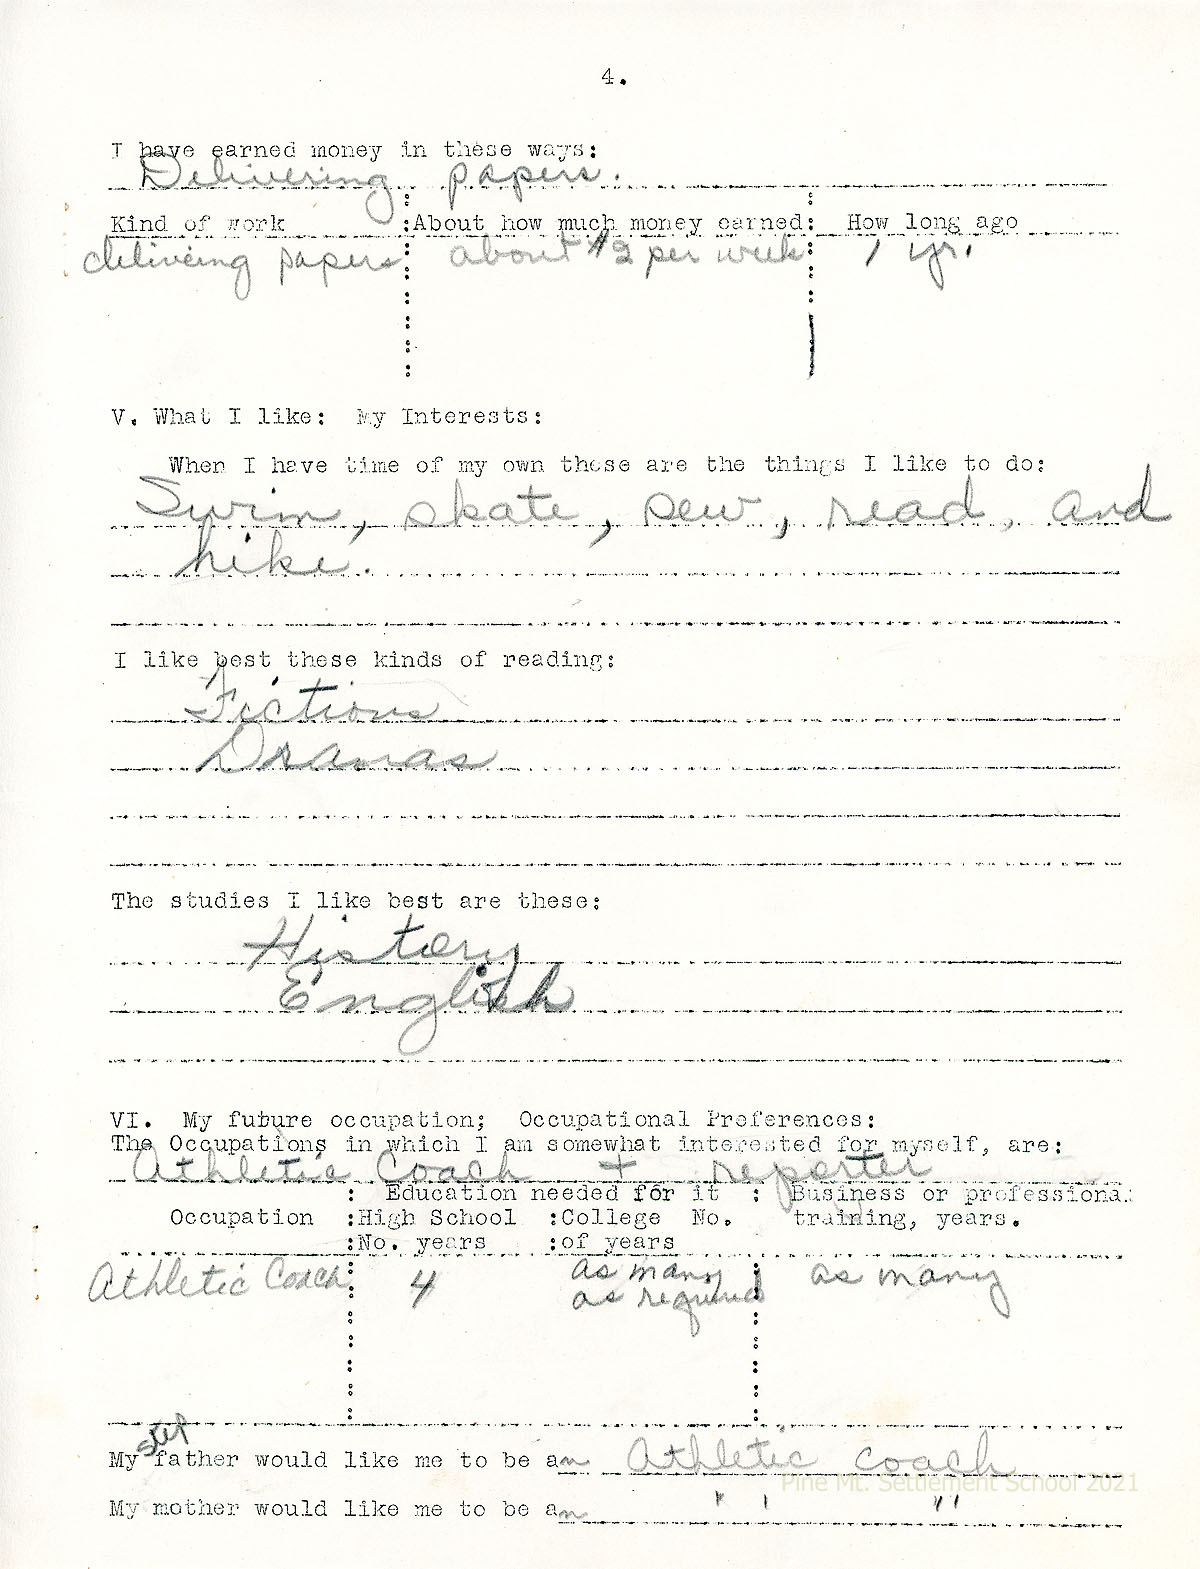 4.
I have earned money in these ways:
Delivering papers.
Kind of work : About how much money earned: How long ago
delivering papers about $2 per week 1 yr.
V. What I like: My Interests:
When I have time of my own these are the things I like to do:
Swim, skate, sew, read, and
hike.
I like best these kinds of reading:
Fictions
Dramas
The studies I like best are these:
History
English
VI. My future occupation; Occupational Preferences:
The Occupations in which I am somewhat interested for myself, are:
Athletic Coach + reporter
: Education needed for it : Business or professional
Occupation :High School :College No. training, years.
:No. years :of years
Athletic Coach 4 as many as required as many
My step father would like me to be an Athletic coach
My mother would like me to be an " " "
Pine Mt. Settlement School 2021